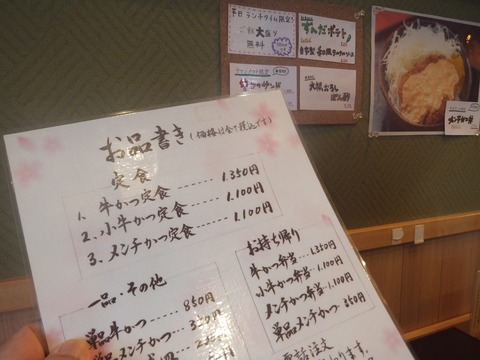 お品書き (価格は全て税込です)
定食
1. 牛かつ定食 ------ 1.350円
2. 小牛かつ定食 --- 1.100円
3. メンチかつ定食 --- 1.100円
一品・その他
単品牛かつ ---- 850円
単品メンチかつ
お持ち帰り
牛かつ弁当 --- 1.350円
小牛かつ弁当 -- 1.100円
メンチかつ弁当 -- 1.100円
単品メンチかつ -- 350円
電話注文
平日ランチタイム限定!
ご飯大盛り
無料
ずんだポテト
大根おろし
ぽん酢
メンチかつ丼